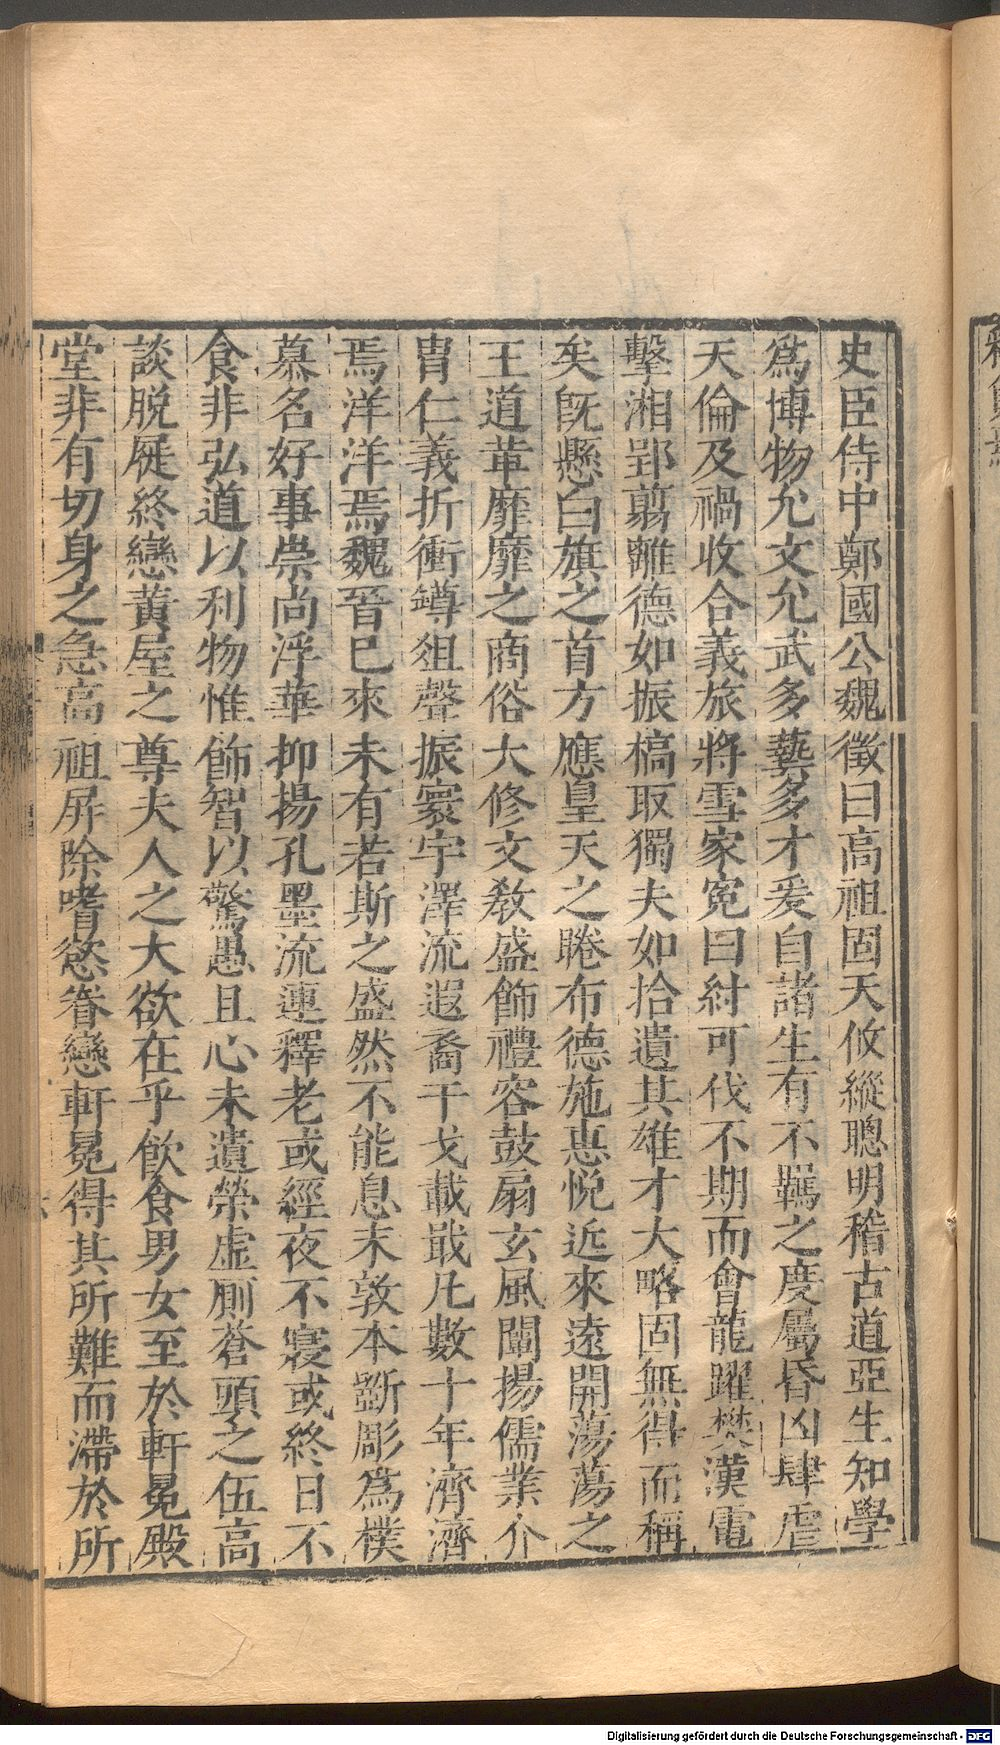 史臣侍中鄭國公魏徵曰高祖固天攸縱聰明稽古道亞生知學
爲博物允文允武多藝多才爰自諸生有不羈之度屬昏凶肆虐
天倫及禍收合義旅將雪家冤曰紂可伐不期而會龍躍樊漢電
擊湘郢翦離德如振槁取獨夫如拾遺其雄才大略固無得而稱
矣旣懸白旗之首方應皇天之睠布德施惠悅近來遠開蕩蕩之
王道革靡靡之商俗大修文敎盛飾禮容鼓扇玄風闡揚儒業介
胄仁義折衝罇俎聲振寰宇澤流遐裔干戈載戢凡數十年濟濟
焉洋洋焉魏晉已來未有若斯之盛然不能息末敦本斵彫爲樸
慕名好事崇尚浮華抑揚孔墨流連釋老或經夜不寢或終日不
食非弘道以利物惟飾智以驚愚且心未遺榮虛厠蒼頭之伍高
談脫屣終戀黃屋之尊夫人之大欲在乎飮食男女至於軒冕殿
堂非有切身之急高祖屏除嗜慾眷戀軒冕得其所難而滯於所
Digitalisierung gefördert durch die Deutsche Forschungsgemeinschaft - DFG